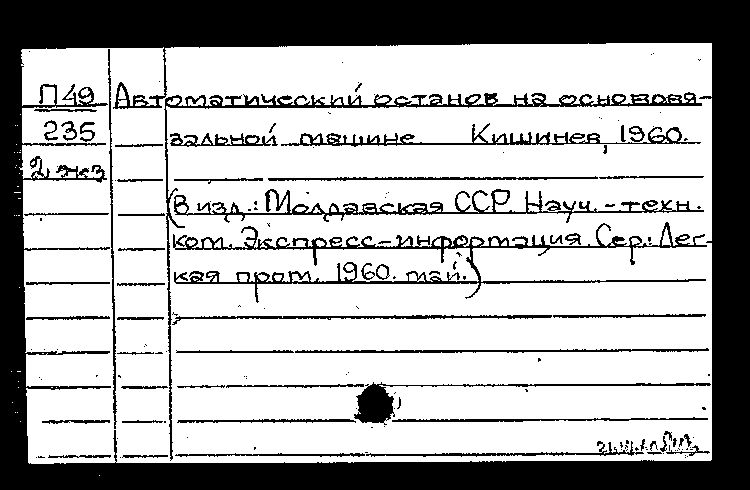 П49 Автоматический останов на основовя-
235 зальной машине. Кишинев, 1960.
2 экз
(В изд.: Молдавская ССР. Науч.-техн.
ком. Экспресс-информация. Сер.: Лег-
кая пром. 1960. май.)